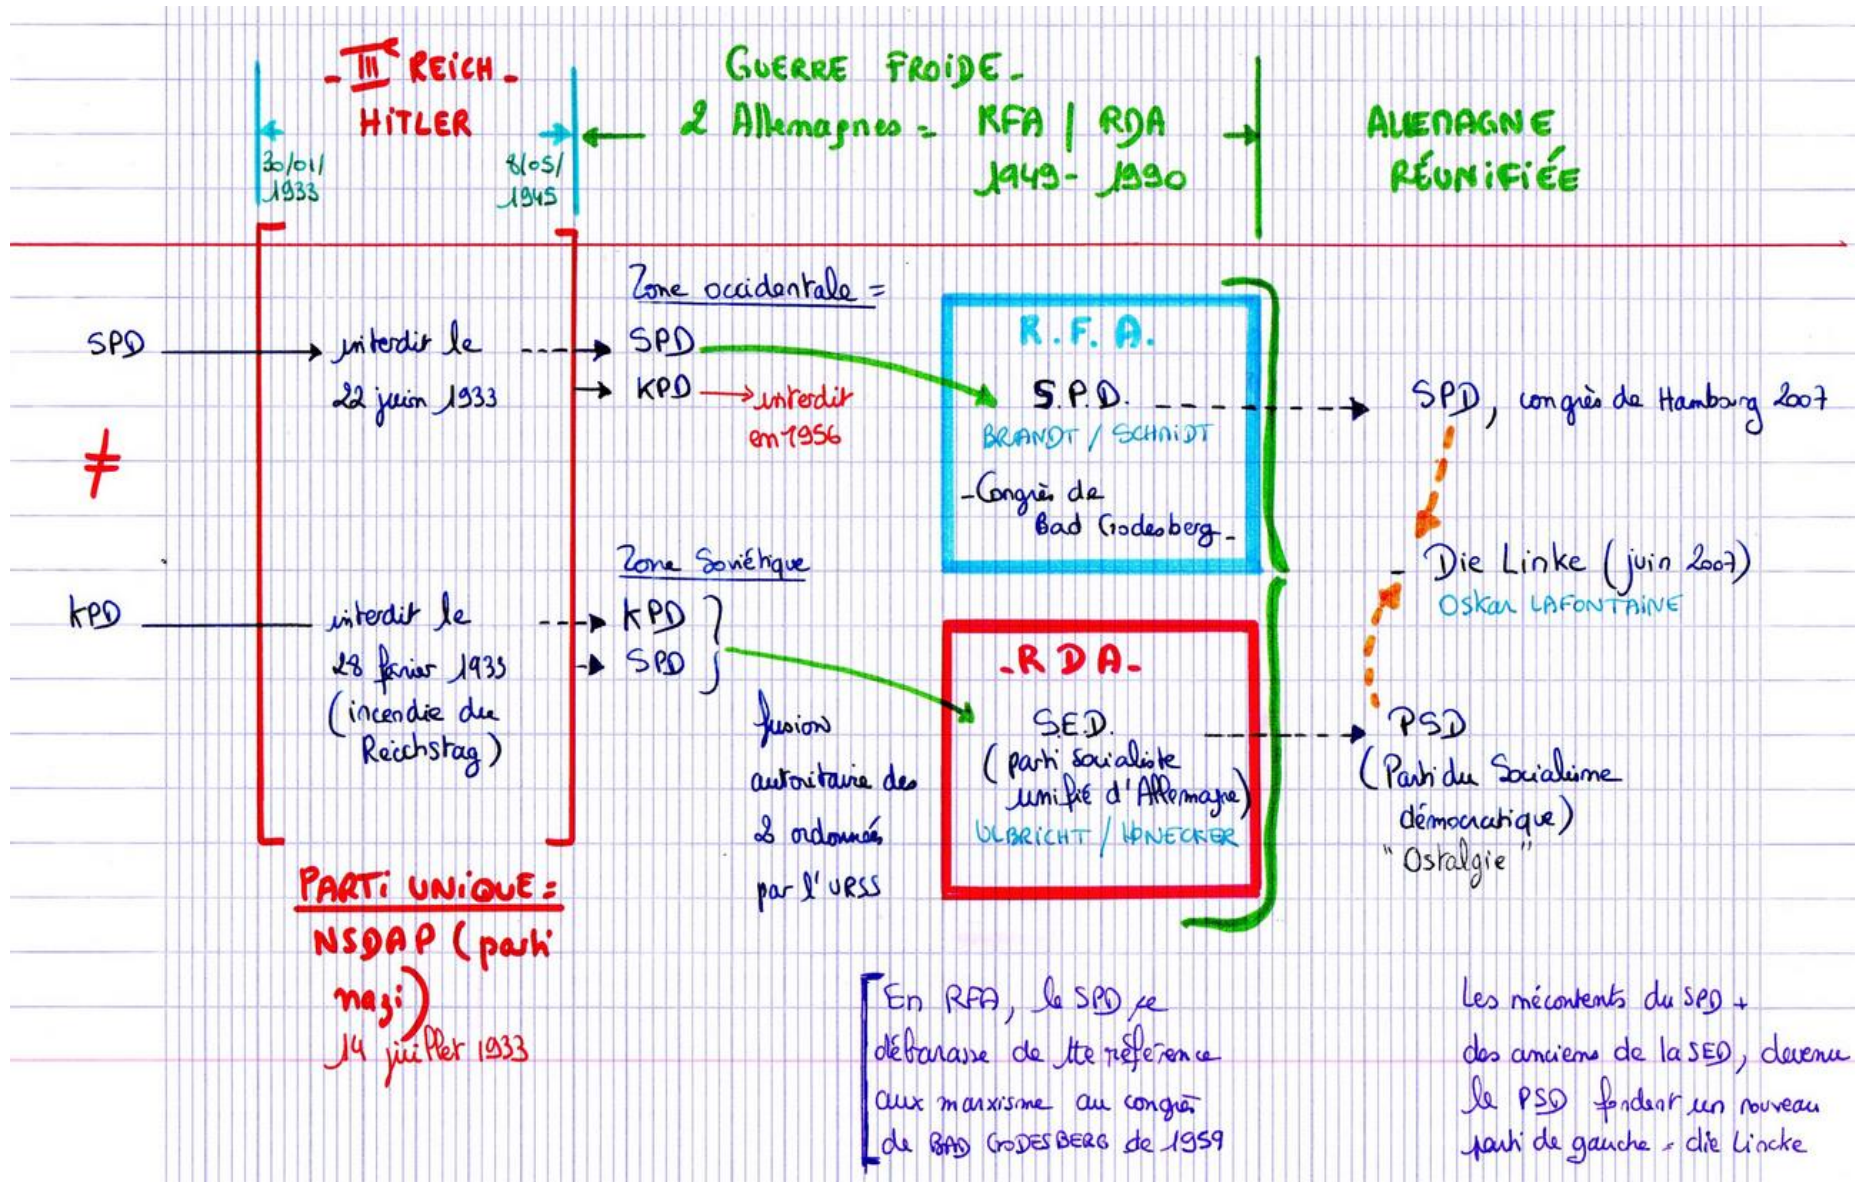 - III REICH -
HITLER
30/01/
1933
8/05/
1945
GUERRE FROIDE -
2 Allemagnes = RFA | RDA
1949 - 1990
ALLEMAGNE
RÉUNIFIÉE
SPD
interdit le
22 juin 1933
≠
KPD
interdit le
28 février 1933
(incendie du
Reichstag)
PARTI UNIQUE =
NSDAP (parti
nazi)
14 juillet 1933
Zone occidentale =
SPD
KPD
interdit
en 1956
Zone Soviétique
KPD
SPD
fusion
autoritaire des
2 ordonnée
par l'URSS
R.F.A.
S.P.D.
BRANDT / SCHMIDT
- Congrès de
Bad Godesberg -
- R D A -
S.E.D.
(parti socialiste
unifié d'Allemagne)
ULBRICHT / HONECKER
SPD, congrès de Hambourg 2007
- Die Linke (juin 2007)
Oskar LAFONTAINE
PSD
(Parti du Socialisme
démocratique)
"Ostalgie"
En RFA, le SPD se
débarasse de tte référence
aux marxisme au congrès
de BAD GODESBERG de 1959
Les mécontents du SPD +
des anciens de la SED, devenu
le PSD fondent un nouveau
parti de gauche = die Lincke